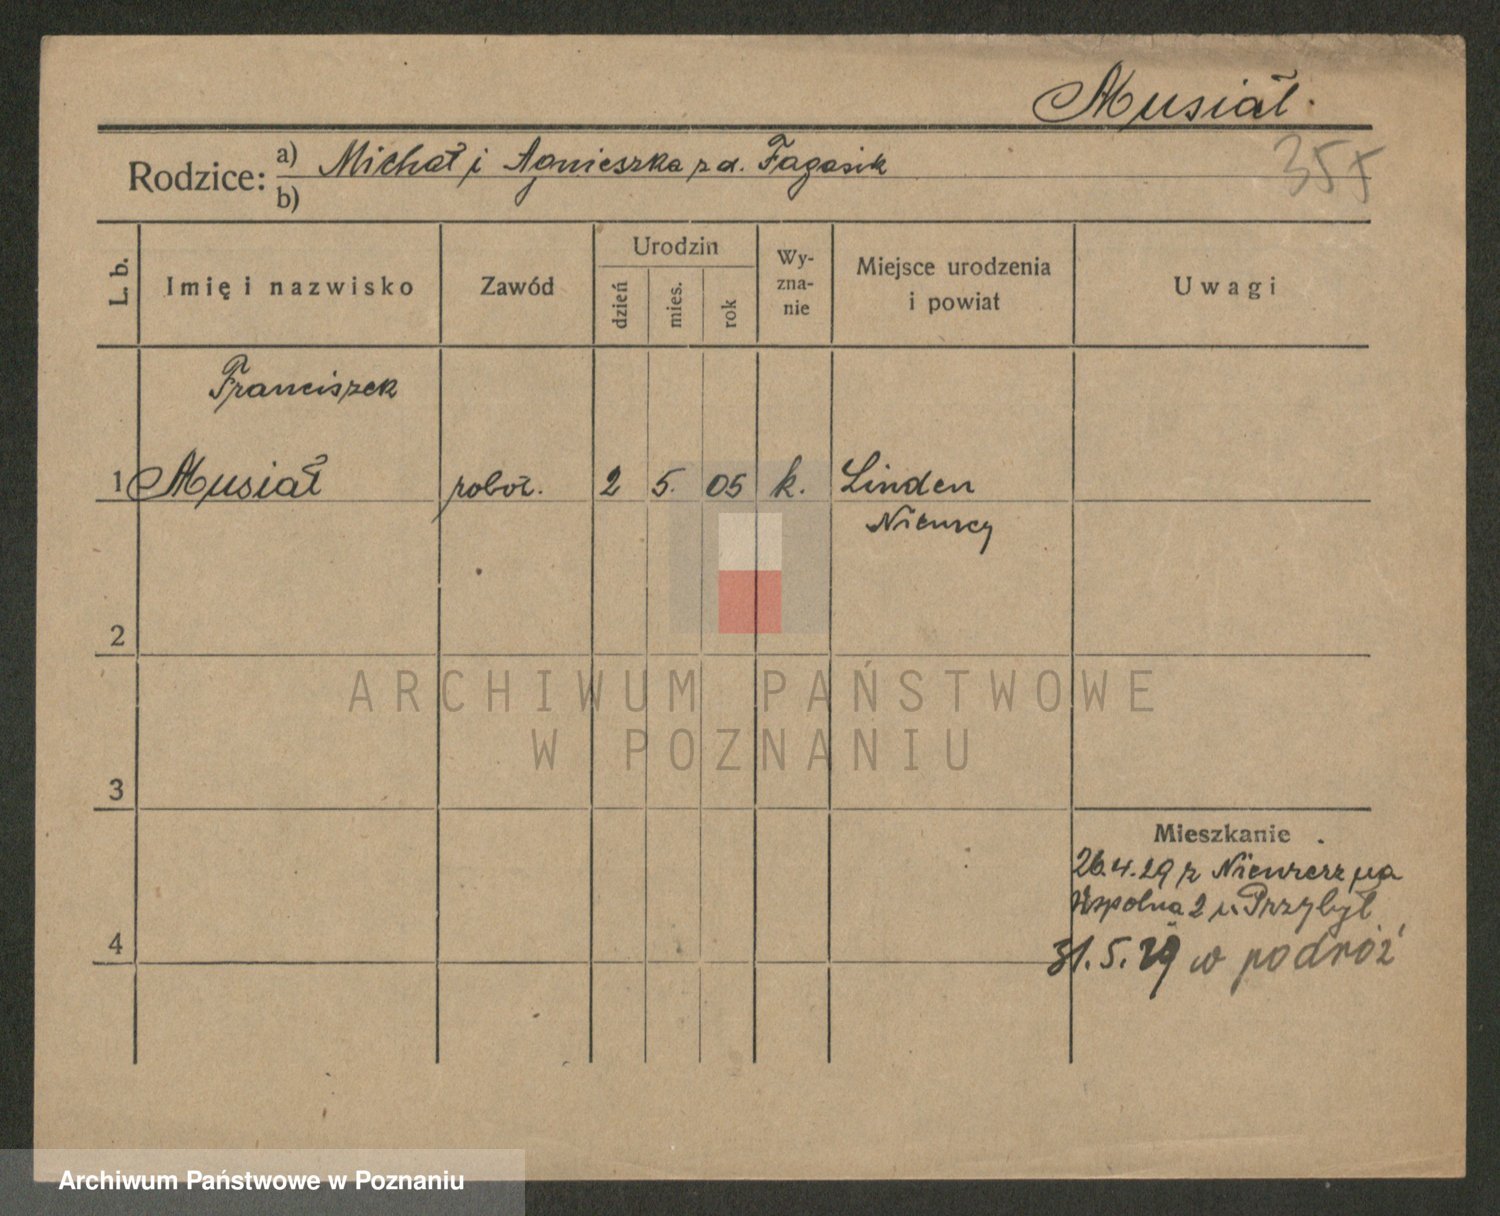 Musiał.
Rodzice: a) Michał i Agnieszka z d. Fagasik
b)
357
L. b.
Imię i nazwisko
Zawód
Urodzin
dzień
mies.
rok
Wy-
zna-
nie
Miejsce urodzenia
i powiat
Uwagi
Franciszek
1 Musiał robot. 2 5. 05 k. Linden
Niemcy
2
3
4
Mieszkanie
26.4.29 z Niemiec na
Wspolna 2 u Przybył
31.5.29 w podróż
ARCHIWUM PAŃSTWOWE
W POZNANIU
Archiwum Państwowe w Poznaniu